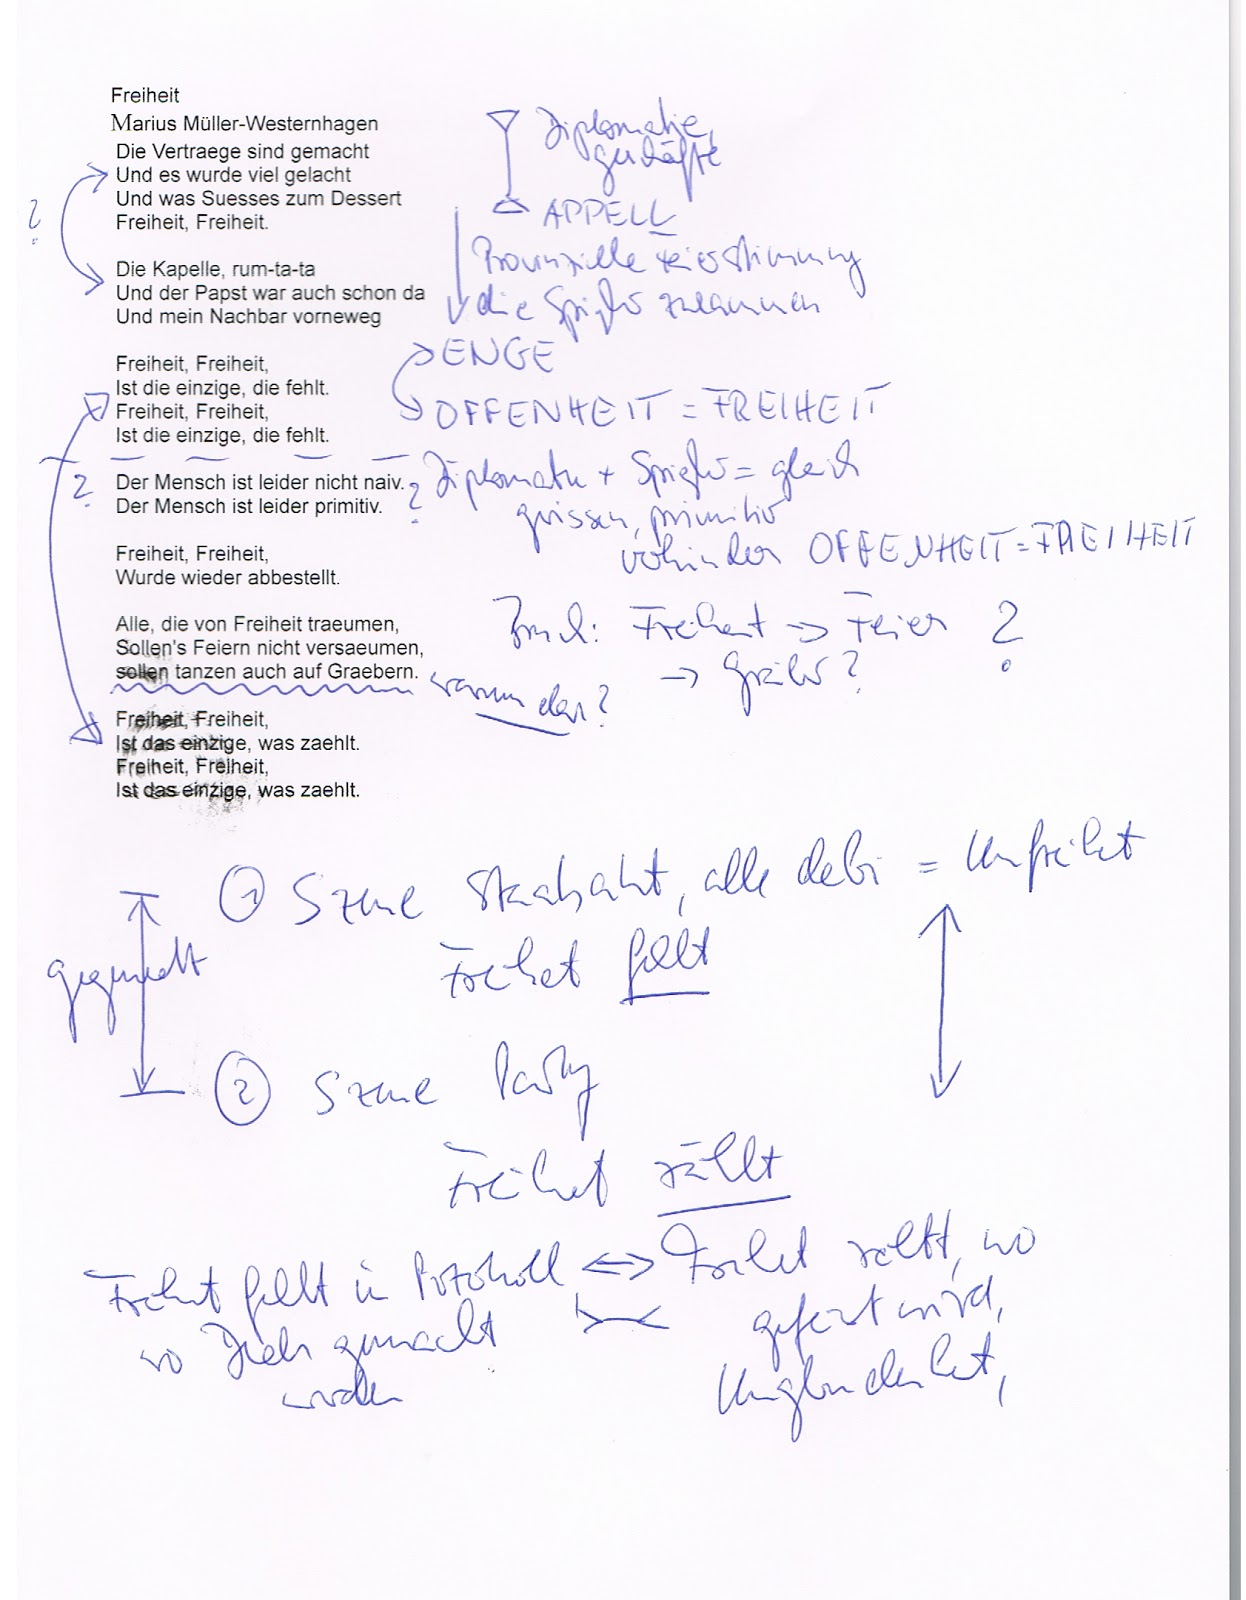 Freiheit
Marius Müller-Westernhagen
Die Vertraege sind gemacht
Und es wurde viel gelacht
Und was Suesses zum Dessert
Freiheit, Freiheit.
?
Die Kapelle, rum-ta-ta
Und der Papst war auch schon da
Und mein Nachbar vorneweg
Freiheit, Freiheit,
Ist die einzige, die fehlt.
Freiheit, Freiheit,
Ist die einzige, die fehlt.
? Der Mensch ist leider nicht naiv. ?
Der Mensch ist leider primitiv.
Freiheit, Freiheit,
Wurde wieder abbestellt.
Alle, die von Freiheit traeumen,
Sollen's Feiern nicht versaeumen,
sollen tanzen auch auf Graebern.
Freiheit, Freiheit,
Ist das einzige, was zaehlt.
Freiheit, Freiheit,
Ist das einzige, was zaehlt.
Diplomatie,
geschäfte
APPELL
Provinzielle Feierstimmung
die Spießer zusammen
ENGE
OFFENHEIT = FREIHEIT
Diplomaten + Spießer = gleich
gerissen, primitiv
verhindern OFFENHEIT = FREIHEIT
Bruch: Freiheit → Feier ?
→ Gräber?
warum den?
① Szene Staatsakt, alle dabei = Unfreiheit
Freiheit fehlt
gegenwelt
② Szene Party
Freiheit zählt
Freiheit fehlt im Protokoll ⇔ Freiheit zählt, wo
wo Deals gemacht gefeiert wird,
werden Ungebundenheit,